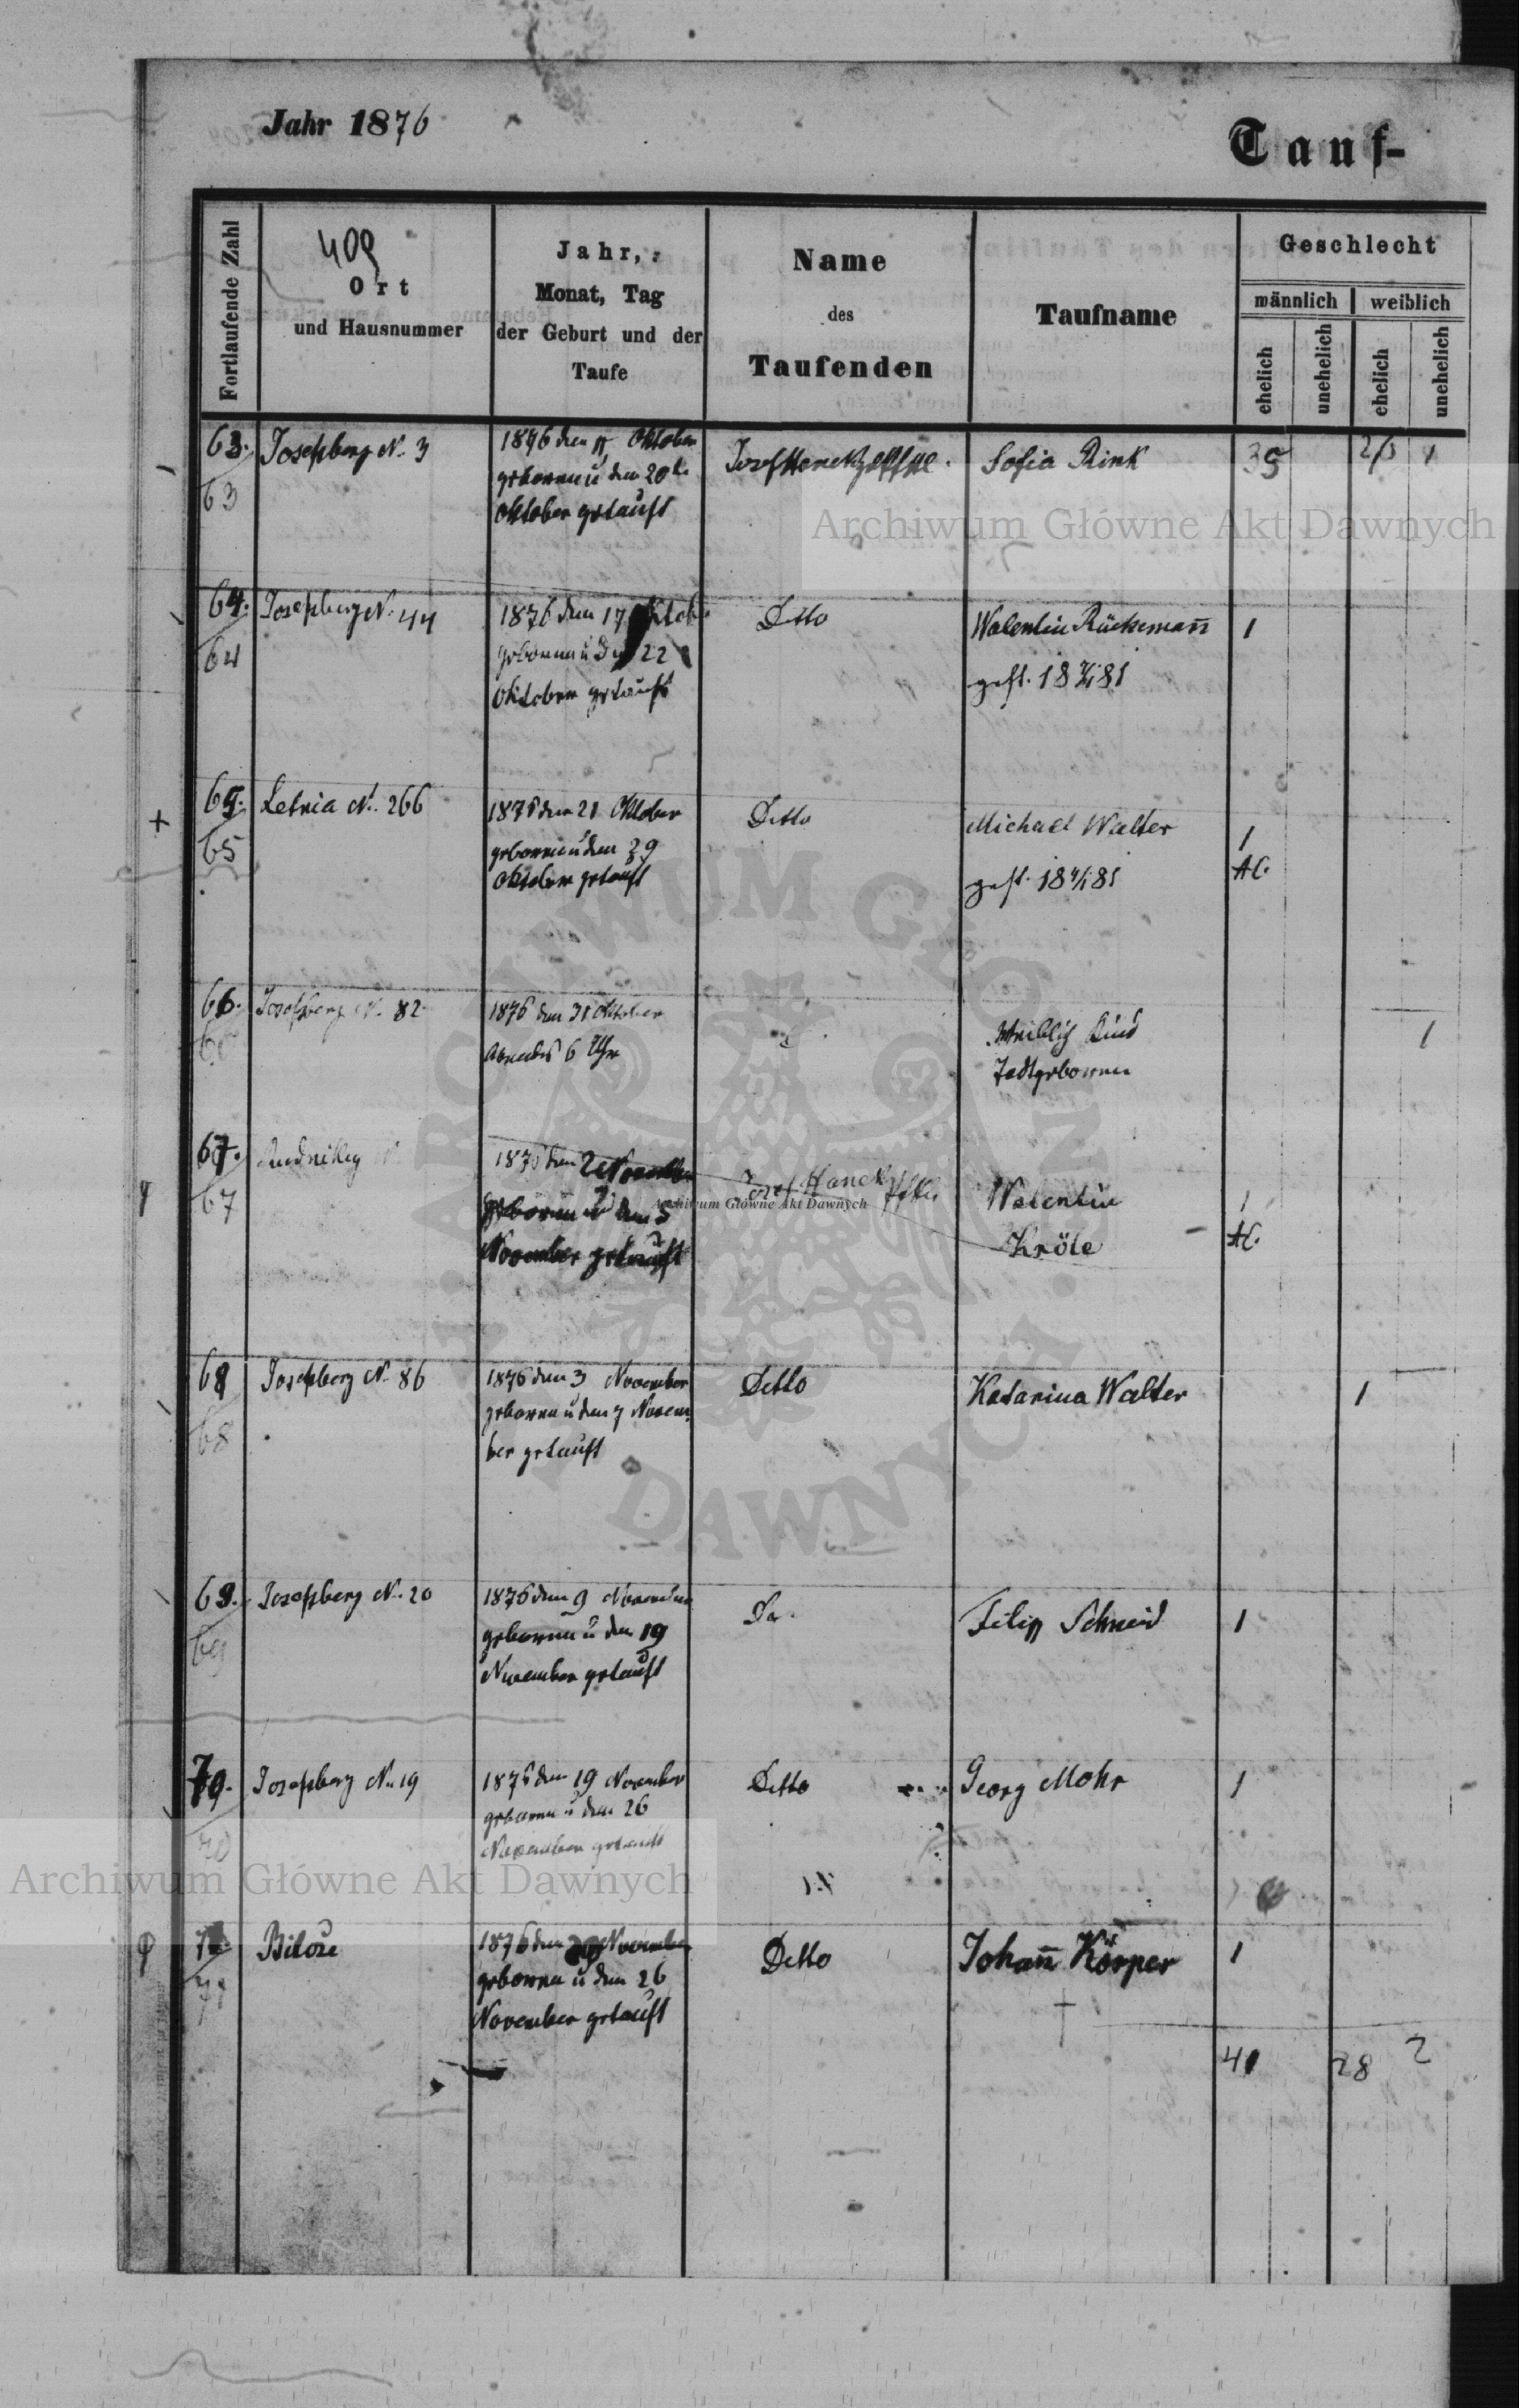 Jahr 1876
Tauf-
Fortlaufende Zahl
409
Ort
und Hausnummer
Jahr,
Monat, Tag
der Geburt und der
Taufe
Name
des
Taufenden
Taufname
Geschlecht
männlich
weiblich
ehelich
unehelich
ehelich
unehelich
63.
63
Josephberg N. 3
1876 den Oktober
geboren u den 20
Oktober getauft
Sofia Rink
35
1
64.
64
Josephberg N. 44
1876 den 17
geboren u 22
Oktober getauft
Ditto
Walentin Rückemañ
gest. 18 81
1
65.
65
Letnia N. 266
1876 den 21 Oktober
geboren u den 29
Oktober getauft
Ditto
Michael Walter
gest. 18 81
1
AC.
66.
66
Josefsberg N. 82
1876 den 31 Oktober
Abends 6 Uhr
Weiblich Kind
Todtgeboren
1
67.
67
1876 den 2 November
geboren u den 5
November getauft
Josef Hanek
Walentin
Kröle
1
AC.
68
68
Josephberg N. 86
1876 den 3 November
geboren u den 7 Novem
ber getauft
Ditto
Katarina Walter
1
69.
69
Josefsberg N. 20
1876 den 9 November
geboren u den 19
November getauft
Do.
Filip Schneid
1
70.
70
Josefsberg N. 19
1876 den 19 November
geboren u den 26
November getauft
Ditto
Georg Mohr
1
71
Bilcze
1876 den November
geboren u den 26
November getauft
Ditto
Johañ Körper
1
41
28
2
Archiwum Główne Akt Dawnych
ARCHIWUM GŁÓWNE AKT DAWNYCH
Archiwum Główne Akt Dawnych
Archiwum Główne Akt Dawnych